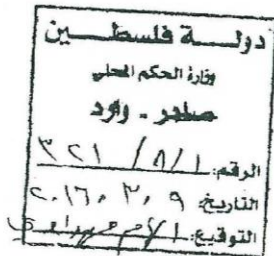 دولـــة فلسطـــين
وزارة الحكم المحلي
صـادر - وارد
الرقم: ٣٢١ / ٨ / ١
التاريخ: ٢٠١٦ ، ٣ ، ٩
التوقيع: